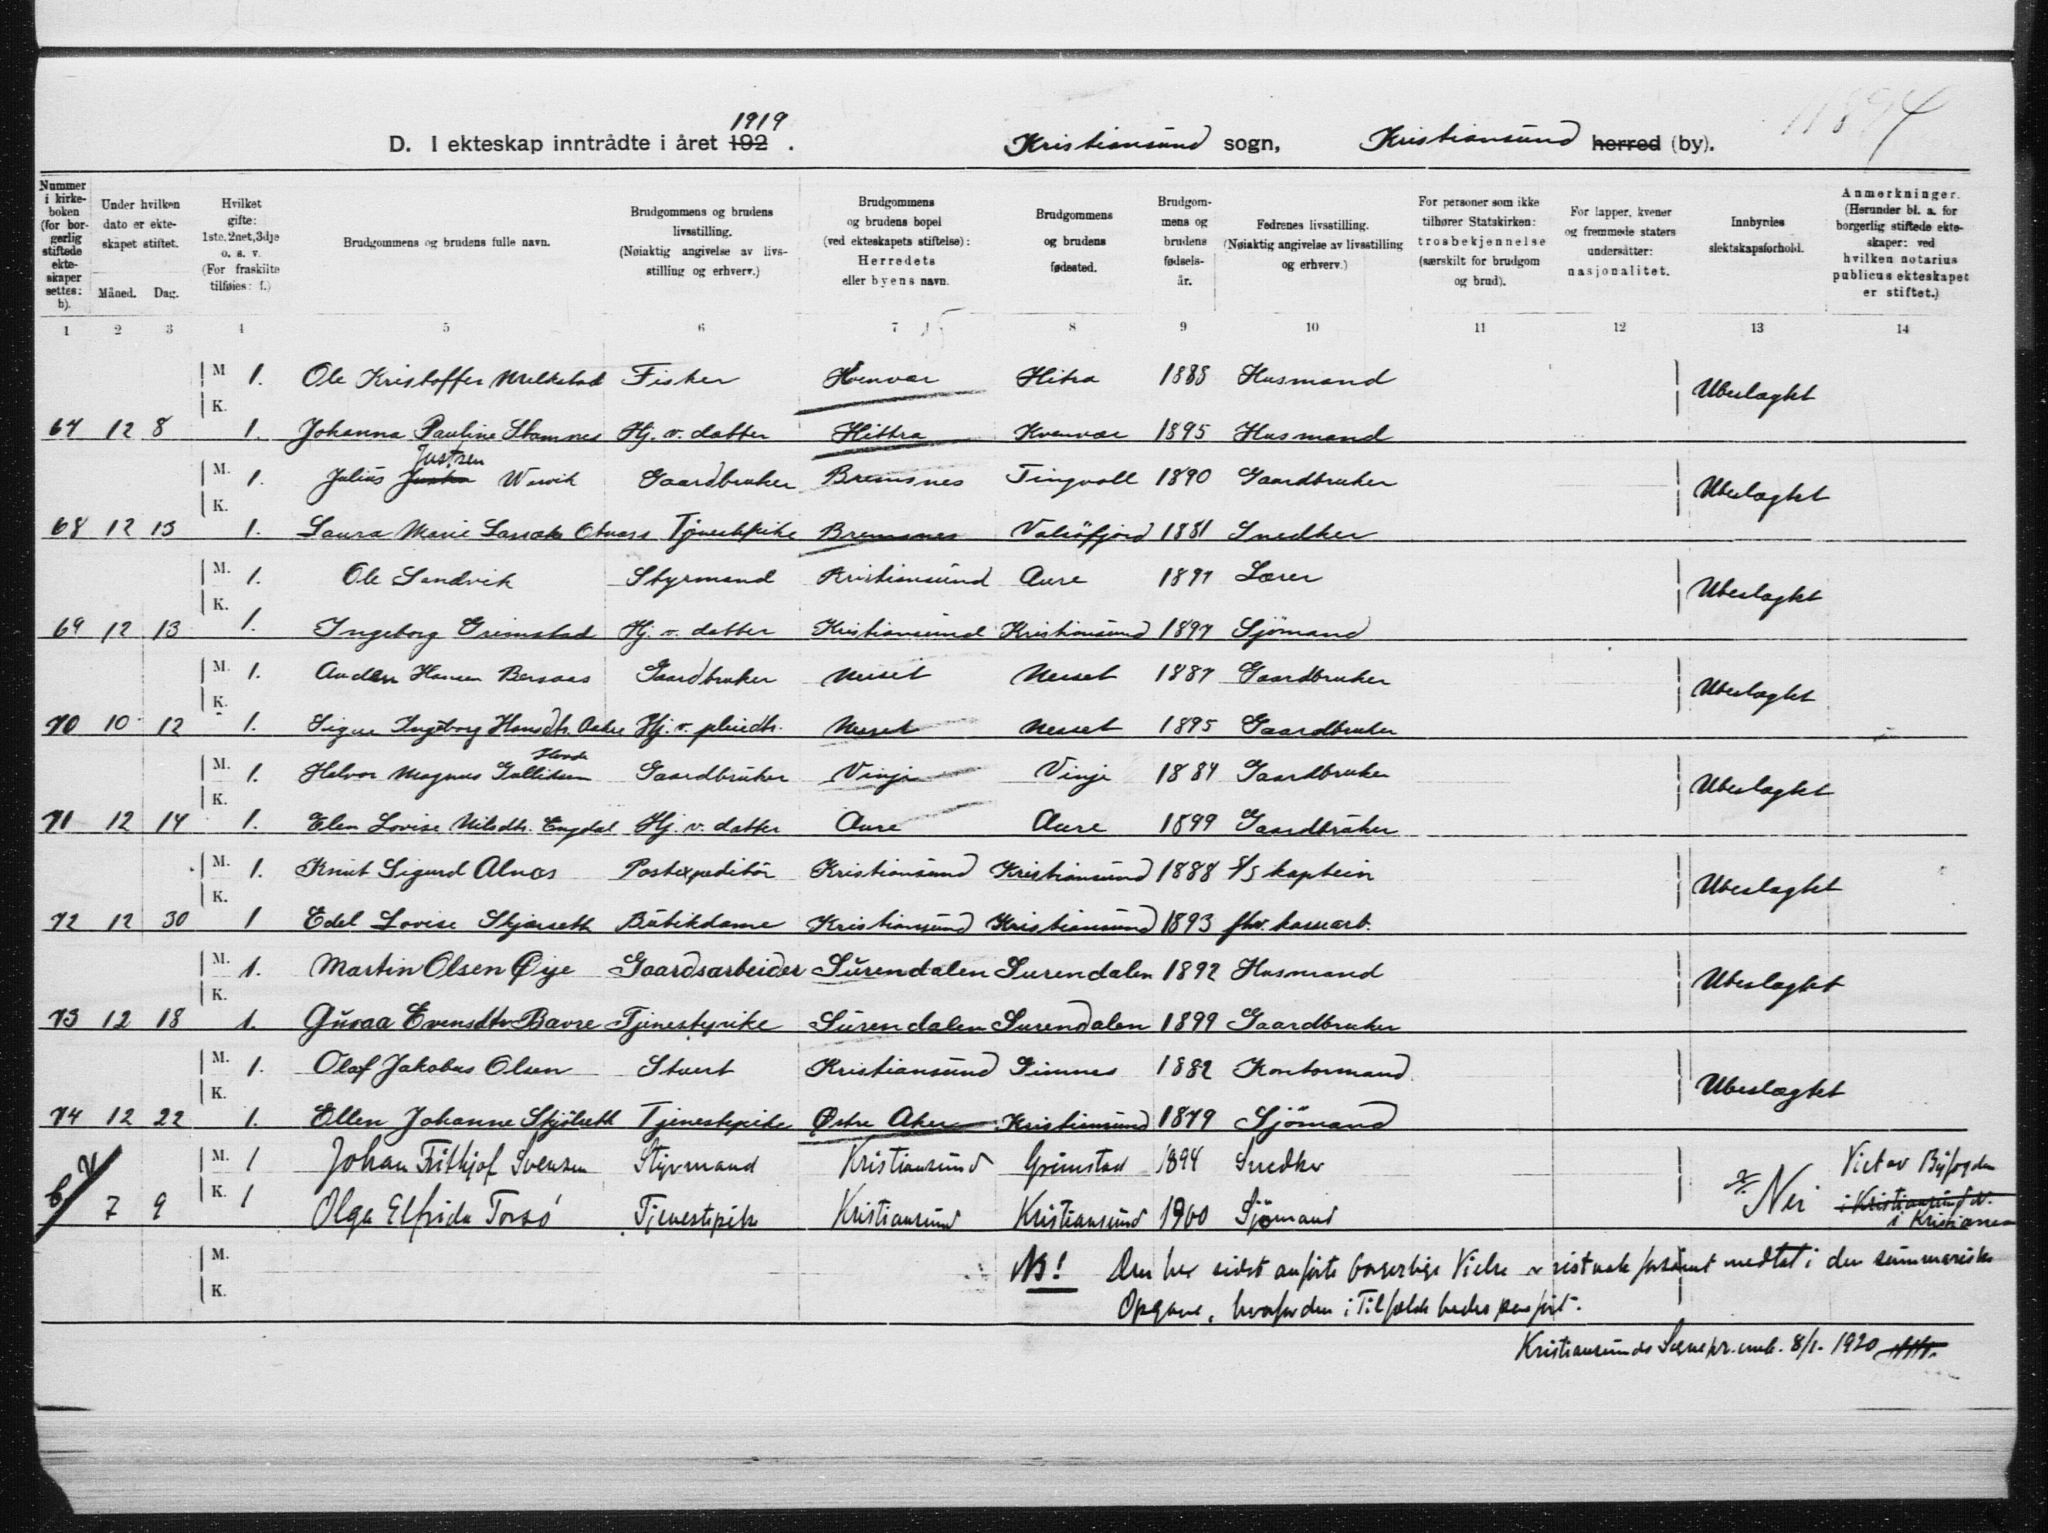 1919
D. I ekteskap inntrådte i året 192 . Kristiansund sogn, Kristiansund herred (by).
Nummer i kirkeboken (for borgerlig stiftede ekteskaper settes: b).
Under hvilken dato er ekteskapet stiftet. Måned. Dag.
Hvilket gifte: 1ste, 2net, 3dje o. s. v. (For fraskilte tilføies: f.)
Brudgommens og brudens fulle navn.
Brudgommens og brudens livsstilling. (Nøiaktig angivelse av livsstilling og erhverv.)
Brudgommens og brudens bopel (ved ekteskapets stiftelse): Herredets eller byens navn.
Brudgommens og brudens fødested.
Brudgommens og brudens fødselsår.
Fedrenes livsstilling. (Nøiaktig angivelse av livsstilling og erhverv.)
For personer som ikke tilhører Statskirken: trosbekjennelse (særskilt for brudgom og brud).
For lapper, kvener og fremmede staters undersåtter: nasjonalitet.
Innbyrdes slektskapsforhold.
Anmerkninger. (Herunder bl. a. for borgerlig stiftede ekteskaper: ved hvilken notarius publicus ekteskapet er stiftet.)
1 2 3 4 5 6 7 8 9 10 11 12 13 14
M 1. Ole Kristoffer Melkstad Fisker Kvenvær Hitra 1885 Husmand Ubeslagtet
K.
67 12 8 1. Johanna Pauline Stamnes Hj. v. datter Hittra Kvenvær 1895 Husmand
Justsen
M. 1. Julius Wærvik Gaardbruker Bremsnes Tingvoll 1890 Gaardbruker Ubeslagtet
K.
68 12 13 1. Laura Marie Otnæss Tjenestepike Bremsnes Valsöfjord 1881 Snedker
M. 1. Ole Sandvik Styrmand Kristiansund Aure 1891 Lærer Ubeslagtet
K.
69 12 13 1. Ingeborg Grimstad Hj. v. datter Kristiansund Kristiansund 1897 Sjömand
M. 1. Hansen Bersaas Gaardbruker Nesset Nesset 1887 Gaardbruker Ubeslagtet
K.
70 10 12 1. Signe Ingeborg Hansdtr. Hj. v. pleiedtr. Nesset Nesset 1895 Gaardbruker
M. 1. Halvor Magnus Gulliksen Gaardbruker Vinje Vinje 1884 Gaardbruker Ubeslagtet
K.
71 12 14 1. Elen Lovise Nilsdtr. Engdal Hj. v. datter Aure Aure 1899 Gaardbruker
M. 1. Knut Sigurd Alnæs Postexpeditör Kristiansund Kristiansund 1888 s/s kaptein Ubeslagtet
K.
72 12 30 1 Edel Lovise Skjærseth Butikdame Kristiansund Kristiansund 1893
M. 1. Martin Olsen Øye Gaardsarbeider Surendalen Surendalen 1892 Husmand Ubeslagtet
K.
73 12 18 1. Guraa Evensdtr Bævre Tjenestepike Surendalen Surendalen 1899 Gaardbruker
M. 1. Olaf Jakobus Olsen Stuert Kristiansund Gimnes 1882 Kontormand Ubeslagtet
K.
74 12 22 1. Ellen Johanne Skjölseth Tjenestepike Østre Aker Kristiansund 1879 Sjömand
M. 1 Johan Frithjof Svensen Styrmand Kristiansund Grimstad 1894 Snedker Nei Viet av Byfogden
K. 1
7 9 Olga Elfrida Torsö Tjenestepike Kristiansund Kristiansund 1900 Sjömand i Kristiansund N.
M.
K.
NB! Den her sidst anförte borgerlige Vielse er medtat i den summariske
Opgave, i Tilfælde bedes
8/1. 1920